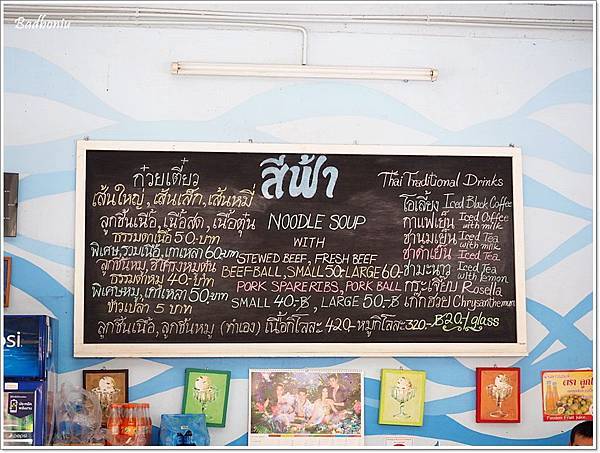 Badboniu
สีฟ้า
ก๋วยเตี๋ยว
เส้นใหญ่, เส้นเล็ก, เส้นหมี่
ลูกชิ้นเนื้อ, เนื้อสด, เนื้อตุ๋น
ธรรมดาเนื้อ 50-บาท
พิเศษ, รวมเนื้อ, เกาเหลา 60บาท
ลูกชิ้นหมู, ซี่โครงหมูตุ๋น
ธรรมดาหมู 40-บาท
พิเศษหมู, เกาเหลา 50 บาท
ข้าวเปล่า 5 บาท
NOODLE SOUP
WITH
STEWED BEEF, FRESH BEEF
BEEF BALL, SMALL 50-LARGE 60-
PORK SPARERIBS, PORK BALL
SMALL 40-B, LARGE 50-B
ลูกชิ้นเนื้อ, ลูกชิ้นหมู (ทำเอง) เนื้อกิโลละ 420-หมูกิโลละ 320.-
Thai Traditional Drinks
โอเลี้ยง Iced Black Coffee
กาแฟเย็น Iced Coffee with milk
ชานมเย็น Iced Tea with milk
ชาดำเย็น Iced Tea
ชามะนาว Iced Tea with Lemon
กระเจี๊ยบ Rosella
เก๊กฮวย Chrysanthemum
฿20-/glass
psi
Passion Fruit Juice